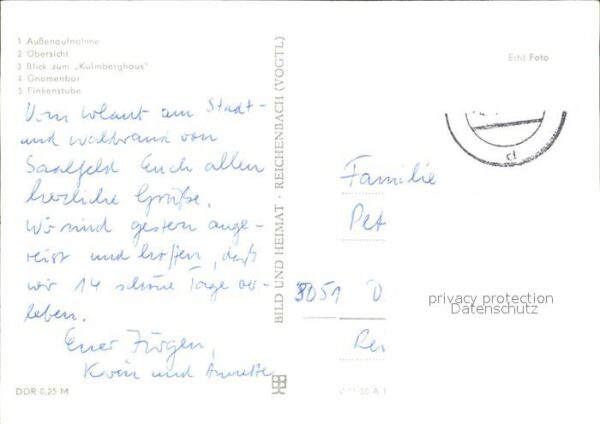 1 Außenaufnahme
2 Übersicht
3 Blick zum „Kulmberghaus"
4 Gnomenbar
5 Finkenstube
Vom Urlaub am Stadt-
und Waldrand von
Saalfeld Euch allen
herzliche Grüße.
Wir sind gestern ange-
reist und hoffen, daß
wir 14 schöne Tage ver-
leben.
Euer Jürgen,
Karin und Annette
DDR 0,25 M
BILD UND HEIMAT · REICHENBACH (VOGTL)
Echt Foto
Familie
Pet
8051 D
Rei
V 11 50 A 1
privacy protection
Datenschutz